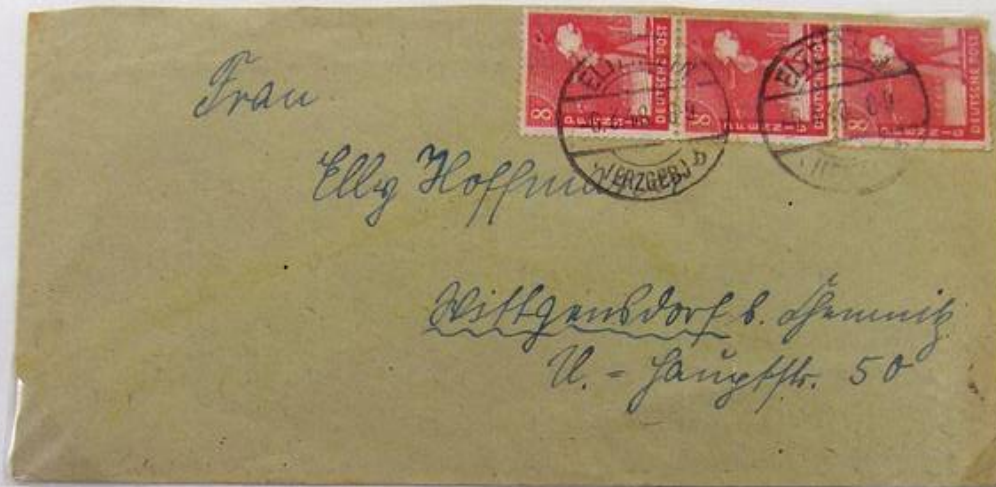 8 PFENNIG DEUTSCHE POST
8 PFENNIG DEUTSCHE POST
8 PFENNIG DEUTSCHE POST
(ERZGEB.) b
Frau
Elly Hoffmann
Wittgensdorf b. Chemnitz
U. = Hauptstr. 50